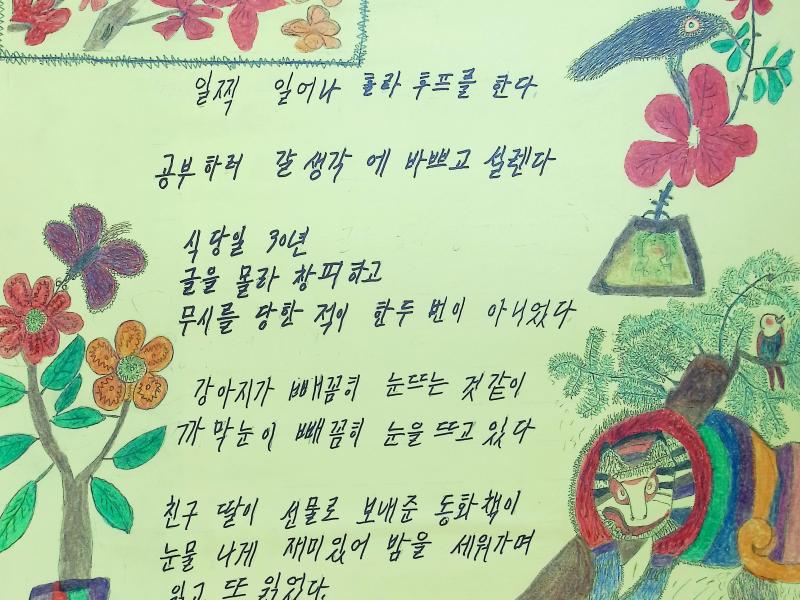 일찍 일어나 훌라후프를 한다
공부하러 갈 생각에 바쁘고 설렌다
식당일 30년
글을 몰라 창피하고
무시를 당한 적이 한두 번이 아니었다
강아지가 빼꼼히 눈뜨는 것같이
까막눈이 빼꼼히 눈을 뜨고 있다
친구 딸이 선물로 보내준 동화책이
눈물 나게 재미있어 밤을 세워가며
읽고 또 읽었다